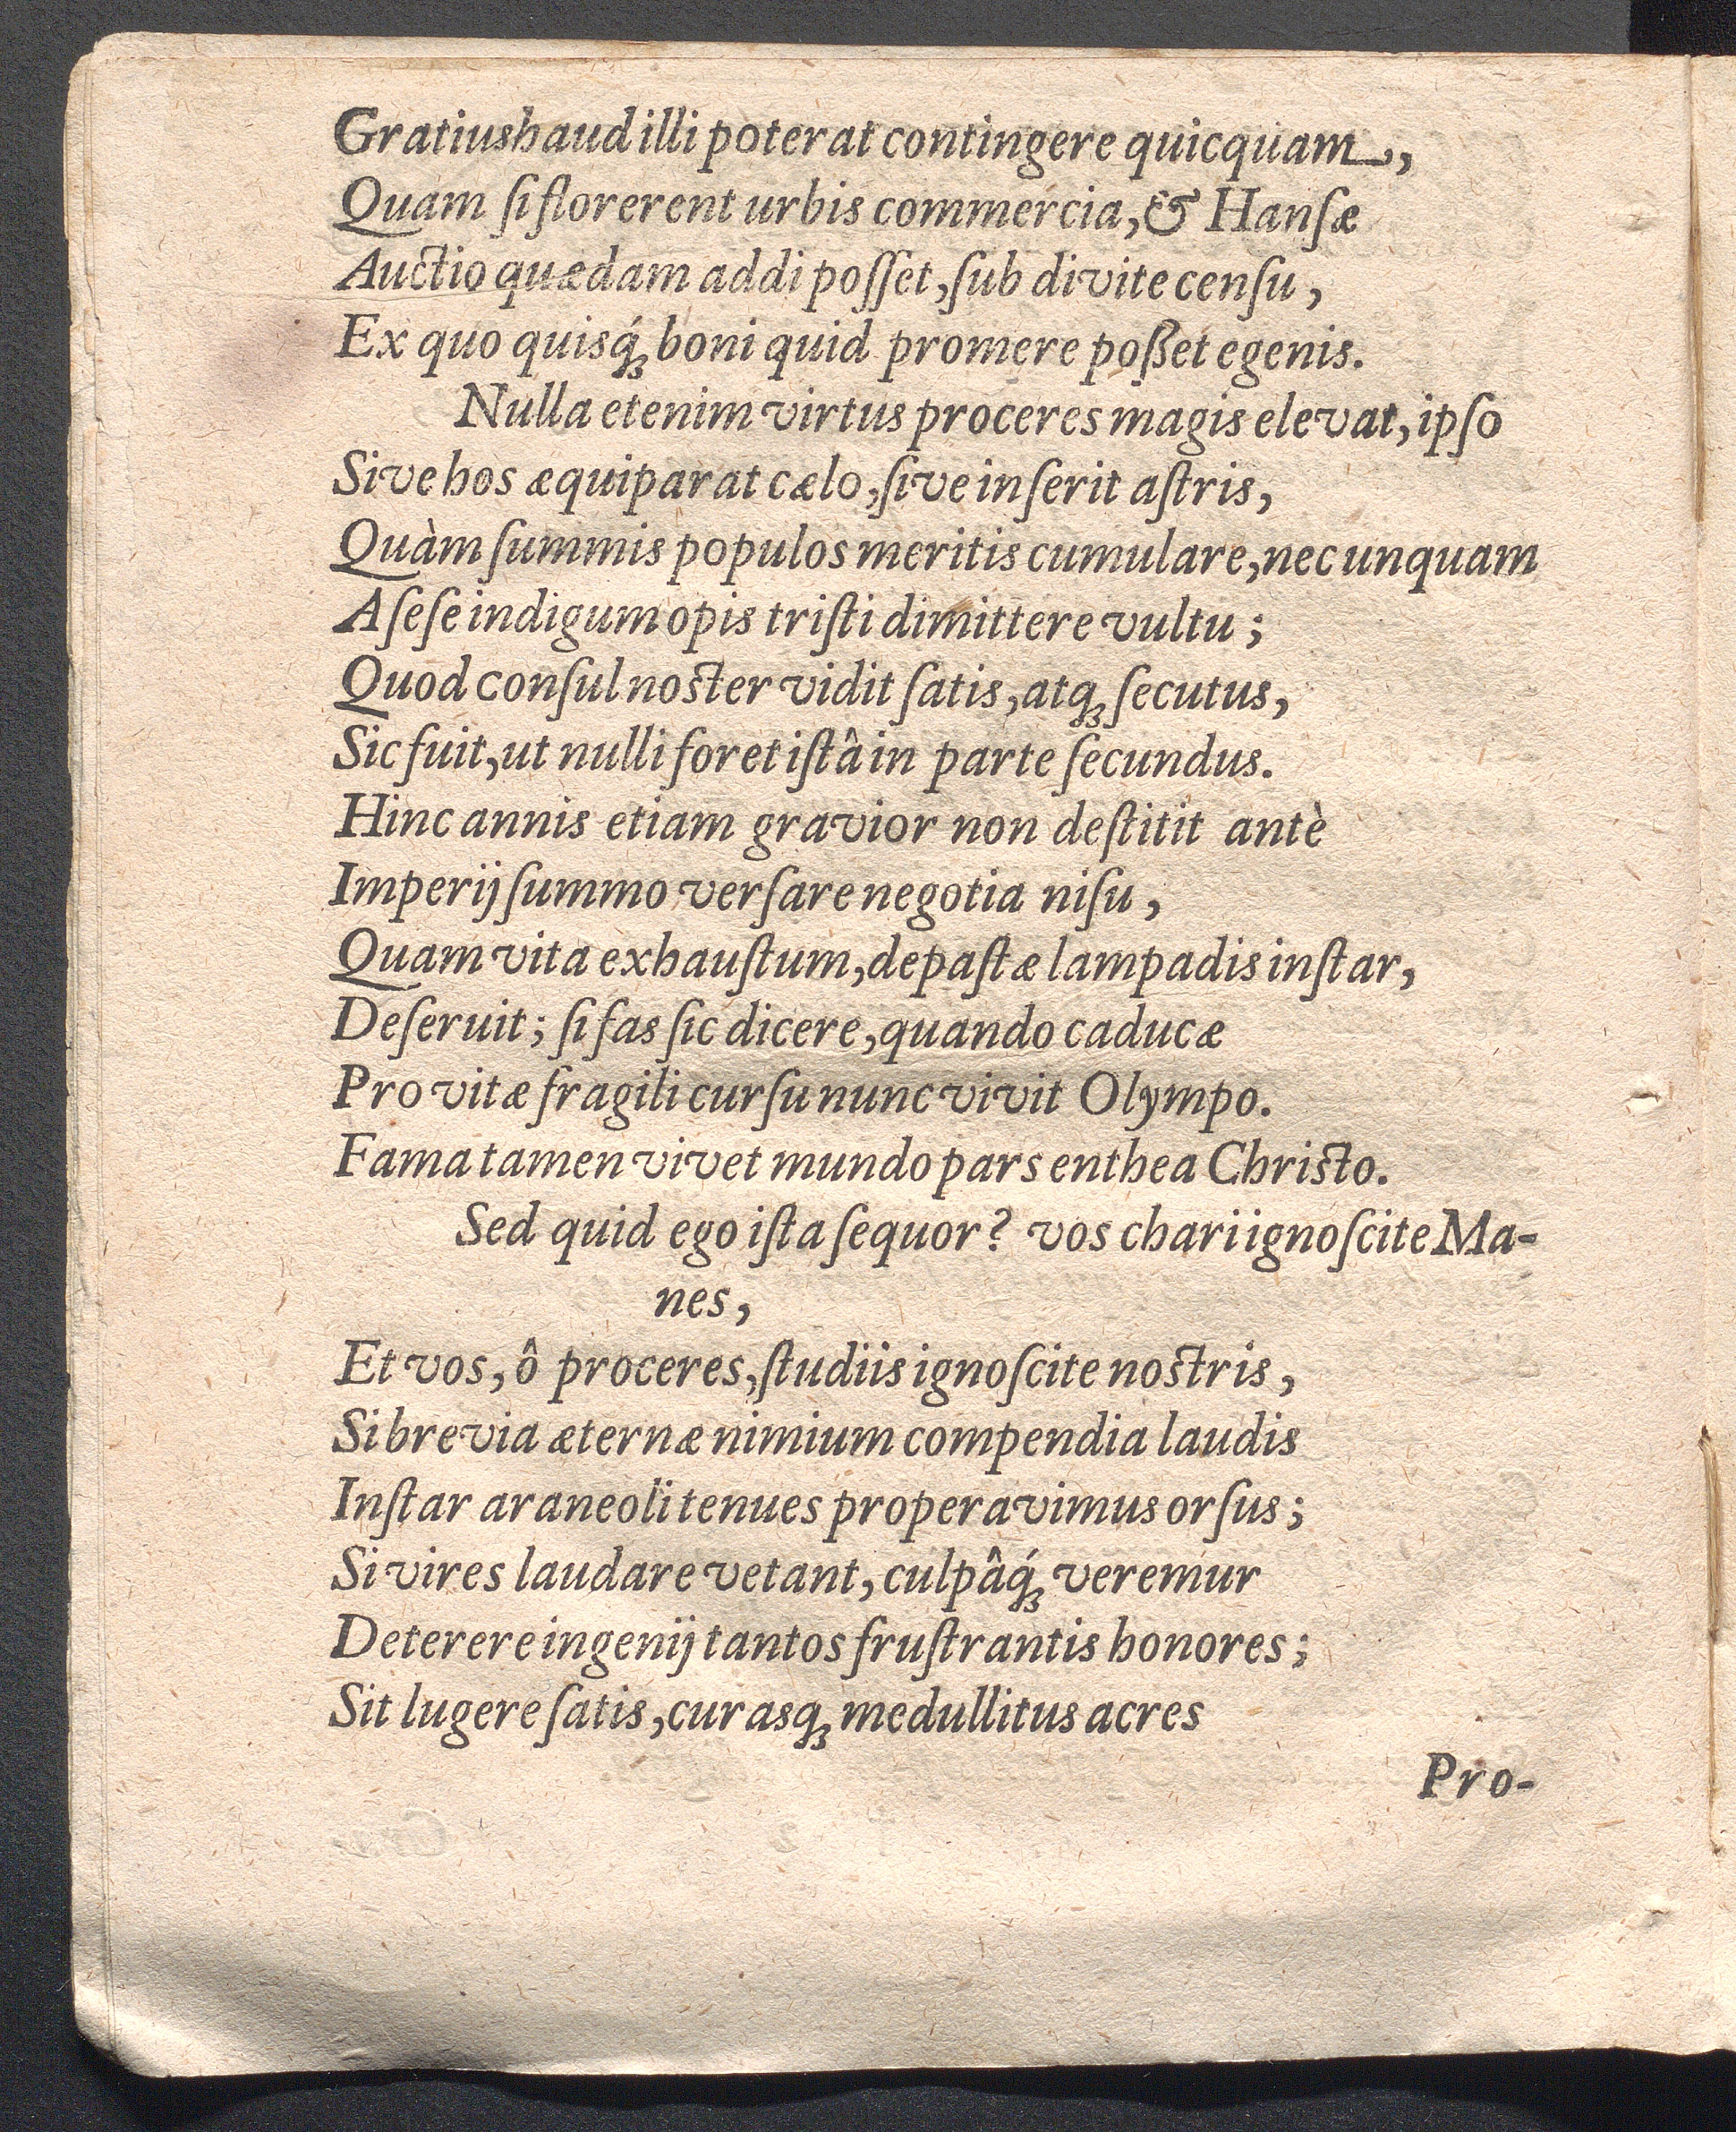 Gratius haud illi poterat contingere quicquam,
Quam ſi florerent urbis commercia, & Hanſæ
Auctio quædam addi poſſet, ſub divite cenſu,
Ex quo quisq́ꝫ boni quid promere poßet egenis.
Nulla etenim virtus proceres magis elevat, ipſo
Sive hos æquiparat cælo, ſive inſerit aſtris,
Quàm ſummis populos meritis cumulare, nec unquam
A ſeſe indigum opis triſti dimittere vultu;
Quod conſul noſter vidit ſatis, atqꝫ ſecutus,
Sic fuit, ut nulli foret iſtâ in parte ſecundus.
Hinc annis etiam gravior non deſtitit antè
Imperij ſummo verſare negotia niſu,
Quam vita exhauſtum, depaſtæ lampadis inſtar,
Deſeruit; ſi fas ſic dicere, quando caducæ
Pro vitæ fragili curſu nunc vivit Olympo.
Fama tamen vivet mundo pars enthea Chriſto.
Sed quid ego iſta ſequor? vos chari ignoſcite Ma-
nes,
Et vos, ô proceres, ſtudiis ignoſcite noſtris,
Si brevia æternæ nimium compendia laudis
Inſtar araneoli tenues properavimus orſus;
Si vires laudare vetant, culpâq́ꝫ veremur
Deterere ingenij tantos fruſtrantis honores;
Sit lugere ſatis, curasqꝫ medullitus acres
Pro-